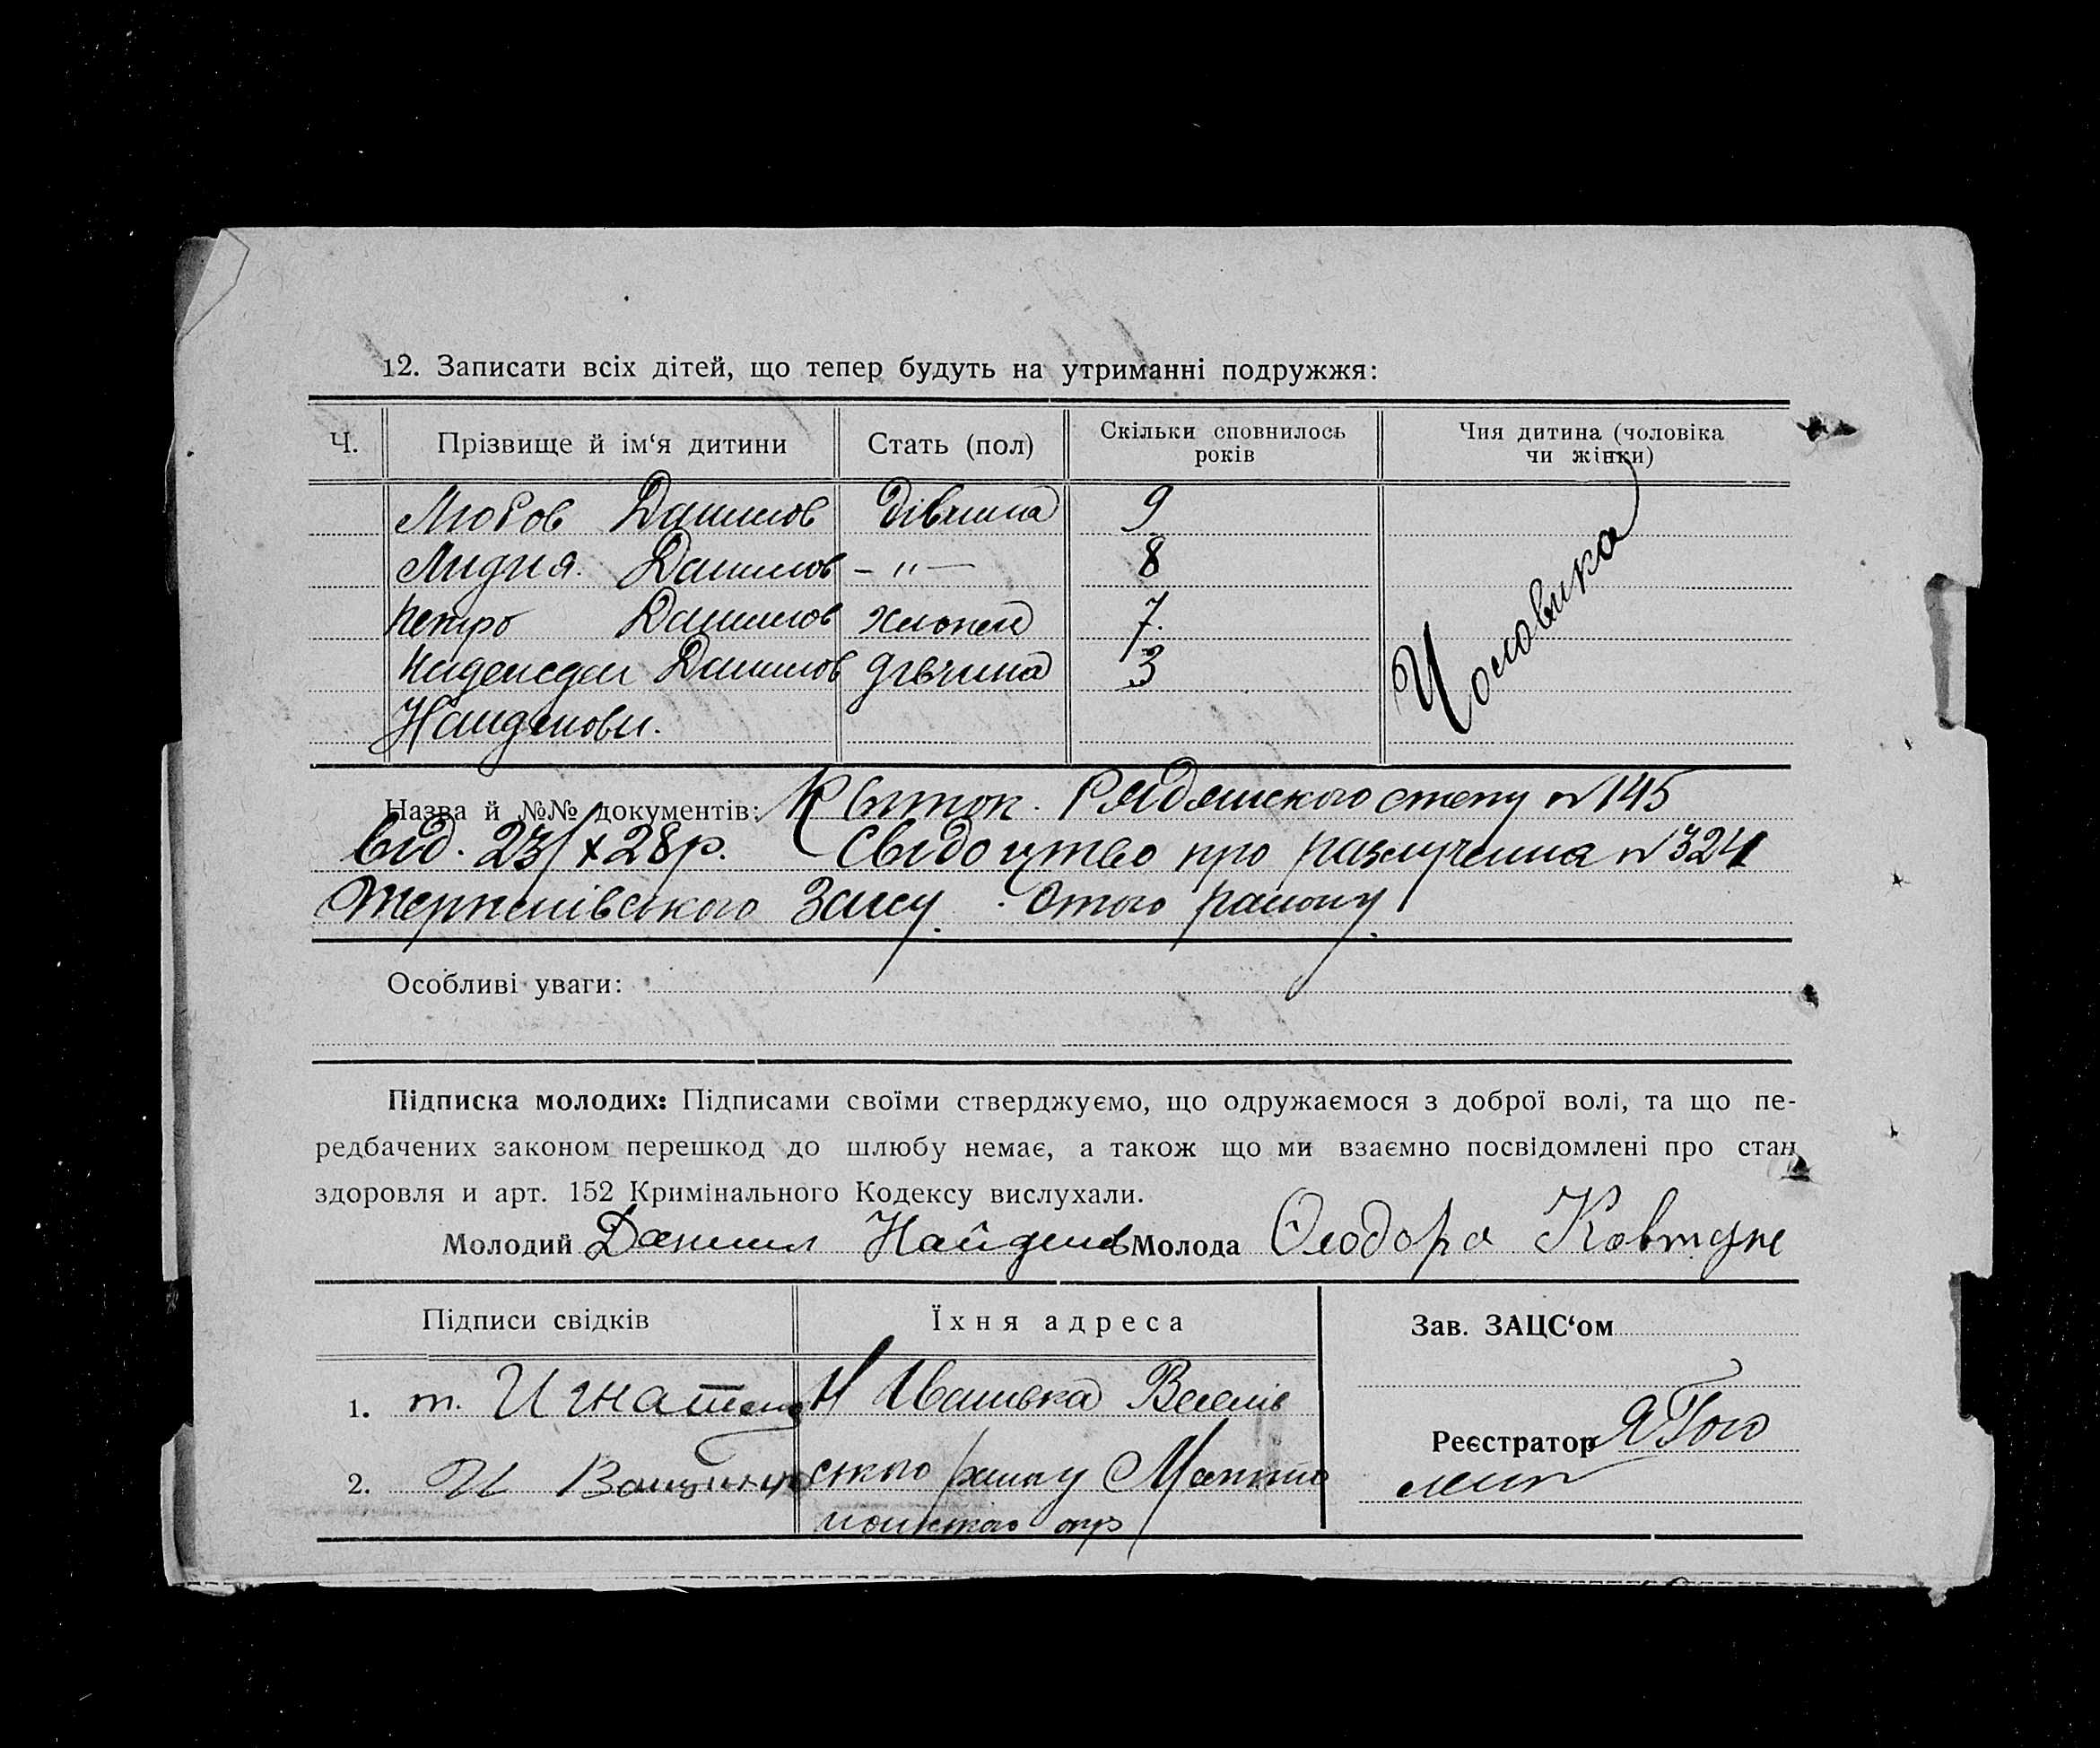 12. Записати всіх дітей, що тепер будуть на утриманні подружжя:
Ч. Прізвище й ім‘я дитини Стать (пол) Скільки сповнилось років Чия дитина (чоловіка чи жінки)
Любов Данилов дівчина 9
Лидия. Данилов – " – 8
Петро Данилов хлопец 7.
Надежда Данилов дівчина 3
Чоловика
Найденови.
Назва й №№ документів: Квиток. Радянського стану №145
від. 23/х 28р. Свідоцтво про разлучення №324
Терпенівського Загсу. Ст­ого району.
Особливі уваги:
Підписка молодих: Підписами своїми стверджуємо, що одружаємося з доброї волі, та що пе-
редбачених законом перешкод до шлюбу немає, а також що ми взаємно посвідомлені про стан
здоровля и арт. 152 Кримінального Кодексу вислухали.
Молодий Данил Найденов Молода Феодора Ковтуне
Підписи свідків Їхня адреса Зав. ЗАЦС‘ом
1. т. Игнатенко Н Иванівка Веселів
Реєстратор
2. И ського району Мелито
польского окр